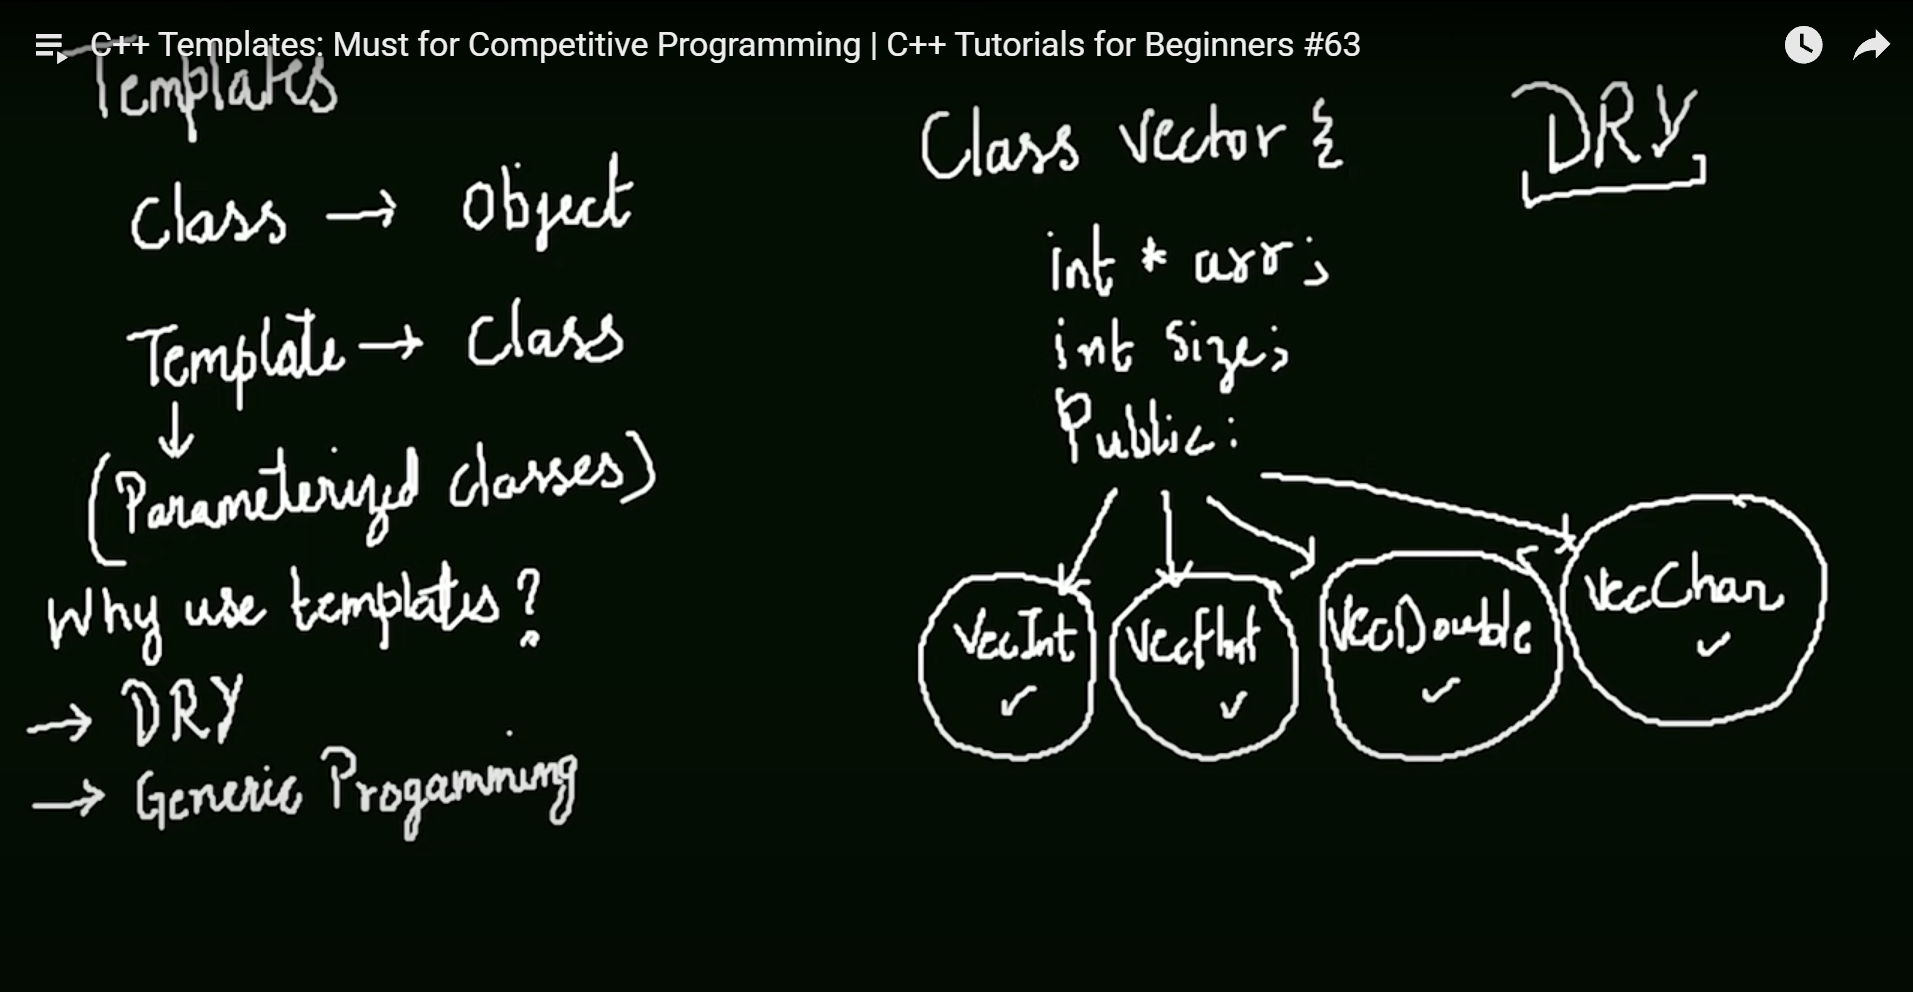 C++ Templates: Must for Competitive Programming | C++ Tutorials for Beginners #63
Templates
Class → Object
Template → Class
↓
(Parameterized classes)
Why use templates?
→ DRY
→ Generic Progamming
Class Vector {
int * arr;
int size;
Public:
VecInt ✓
VecFloat ✓
VecDouble ✓
VecChar ✓
DRY